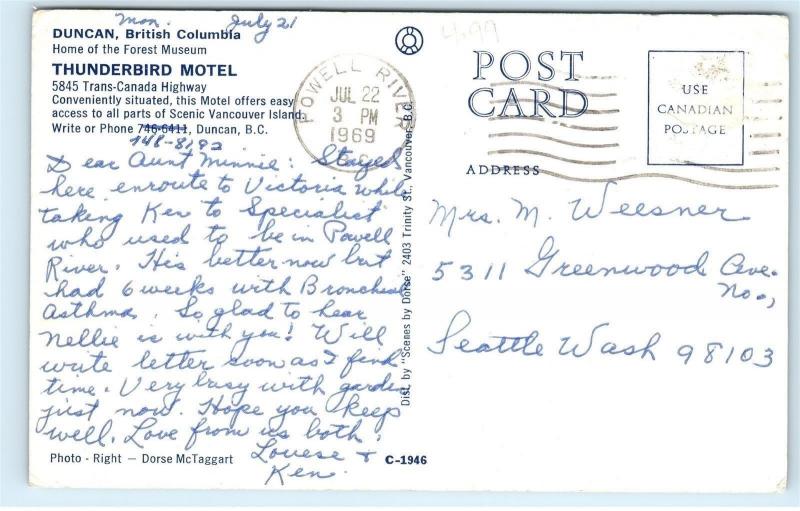 Mon. July 21
DUNCAN, British Columbia
Home of the Forest Museum
THUNDERBIRD MOTEL
5845 Trans-Canada Highway
Conveniently situated, this Motel offers easy
access to all parts of Scenic Vancouver Island.
Write or Phone 746-6411, Duncan, B.C.
748-8192
Dear Aunt Minnie: Stayed
here enroute to Victoria while
taking Ken to Specialist
who used to be in Powell
River. His better now but
had 6 weeks with Bronchial
Asthma. So glad to hear
Nellie is with you! Will
write letter soon as I find
time. Very busy with garden
just now. Hope you keep
well. Love from us both.
Louese &
Ken.
Photo - Right — Dorse McTaggart
C-1946
Dist. by "Scenes by Dorse" 2403 Trinity St., Vancouver, B.C.
POWELL RIVER
JUL 22
3 PM
1969
4.99
POST
CARD
USE
CANADIAN
POSTAGE
ADDRESS
Mrs. M. Weesner
5311 Greenwood Ave.
No.,
Seattle Wash 98103